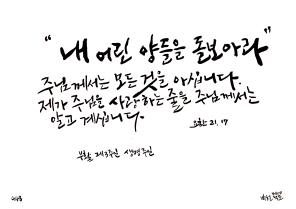 “내 어린 양들을 돌보아라”
주님께서는 모든 것을 아십니다.
제가 주님을 사랑하는 줄을 주님께서는
알고 계십니다.
요한 21, 17
부활 제3주일 생명주일